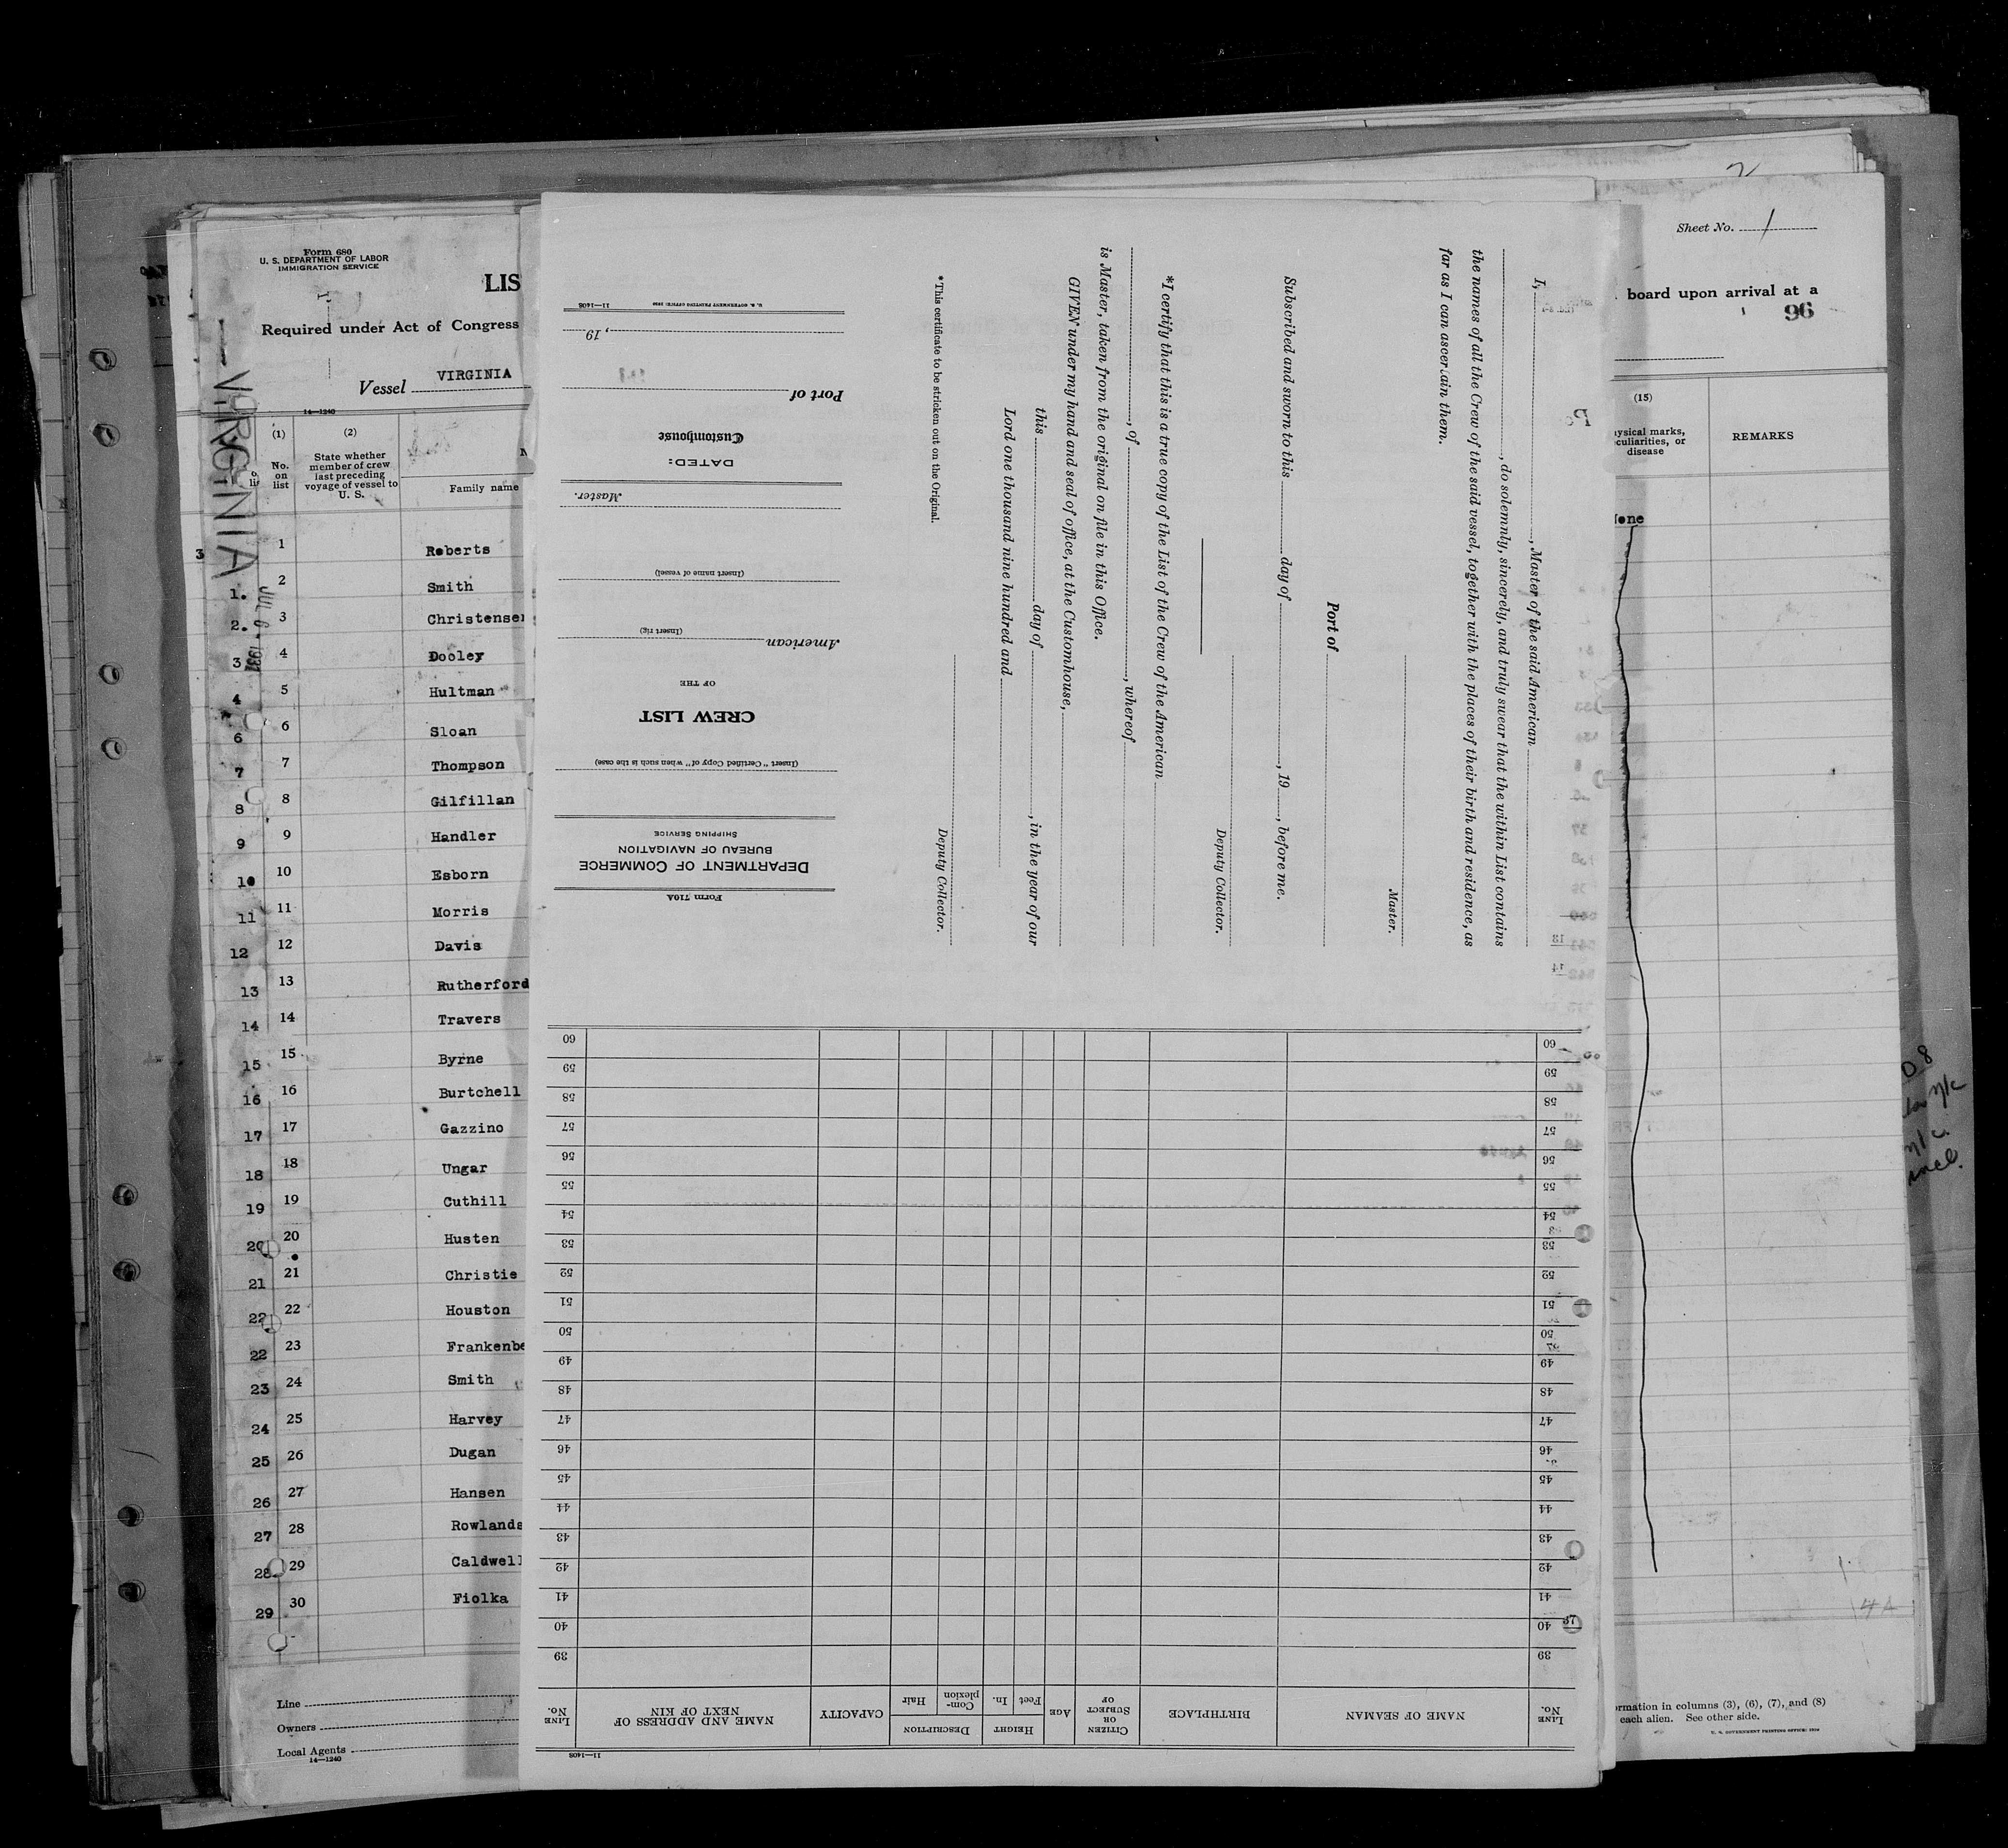 Form 680
U. S. DEPARTMENT OF LABOR
IMMIGRATION SERVICE
LIS
Required under Act of Congress
Vessel VIRGINIA
14—1240
VIRGINIA
JUL 6 - 1931
(1)
No. on list
(2)
State whether member of crew last preceding voyage of vessel to U. S.
Family name
3 1 Roberts
1. 2 Smith
2. 3 Christensen
3 4 Dooley
4 5 Hultman
6 6 Sloan
7 7 Thompson
8 8 Gilfillan
9 9 Handler
10 10 Esborn
11 11 Morris
12 12 Davis
13 13 Rutherford
14 14 Travers
15 15 Byrne
16 16 Burtchell
17 17 Gazzino
18 18 Ungar
19 19 Cuthill
20 20 Husten
21 21 Christie
22 22 Houston
22 23 Frankenbe
23 24 Smith
24 25 Harvey
25 26 Dugan
26 27 Hansen
27 28 Rowlands
28 29 Caldwell
29 30 Fiolka
Line
Owners
Local Agents
14—1240
Form 710A
DEPARTMENT OF COMMERCE
BUREAU OF NAVIGATION
SHIPPING SERVICE
(Insert "Certified Copy of" when such is the case)
CREW LIST
OF THE
American
(Insert rig)
(Insert name of vessel)
Master.
DATED:
Customhouse
Port of
, 19
U. S. GOVERNMENT PRINTING OFFICE: 1930 11—1408
I, , Master of the said American
, do solemnly, sincerely, and truly swear that the within List contains
the names of all the Crew of the said vessel, together with the places of their birth and residence, as
far as I can ascertain them.
Master.
Port of
Subscribed and sworn to this day of , 19 , before me.
Deputy Collector.
*I certify that this is a true copy of the List of the Crew of the American
, of , whereof
is Master, taken from the original on file in this Office.
GIVEN under my hand and seal of office, at the Customhouse,
this day of , in the year of our
Lord one thousand nine hundred and
Deputy Collector.
*This certificate to be stricken out on the Original.
LINE No.
NAME OF SEAMAN
BIRTHPLACE
CITIZEN OR SUBJECT OF
AGE
HEIGHT
Feet
In.
DESCRIPTION
Complexion
Hair
CAPACITY
NAME AND ADDRESS OF NEXT OF KIN
LINE No.
39 39
40 40
41 41
42 42
43 43
44 44
45 45
46 46
47 47
48 48
49 49
50 50
51 51
52 52
53 53
54 54
55 55
56 56
57 57
58 58
59 59
60 60
11—1408
Sheet No. 1
board upon arrival at a
96
(15)
ysical marks,
culiarities, or
disease
REMARKS
None
D 8
n/c
n/c
incl.
ormation in columns (3), (6), (7), and (8)
each alien. See other side.
U. S. GOVERNMENT PRINTING OFFICE: 1930